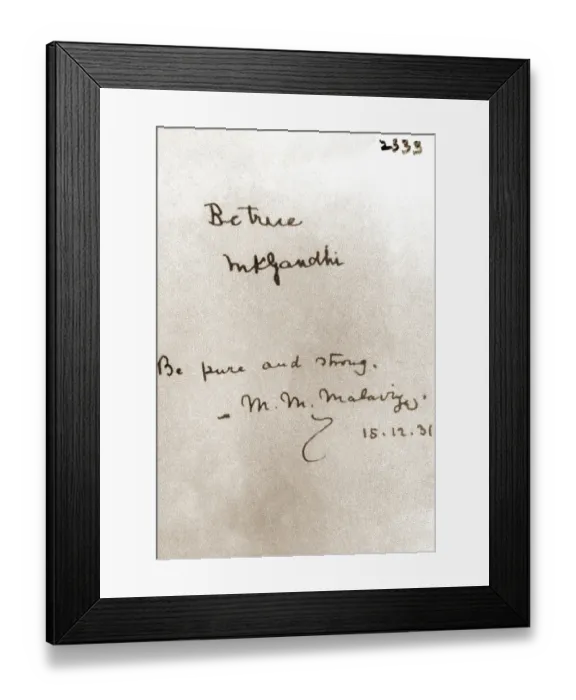 2333
Be true
MKGandhi
Be pure and strong.
- M. M. Malaviya.
15.12.31